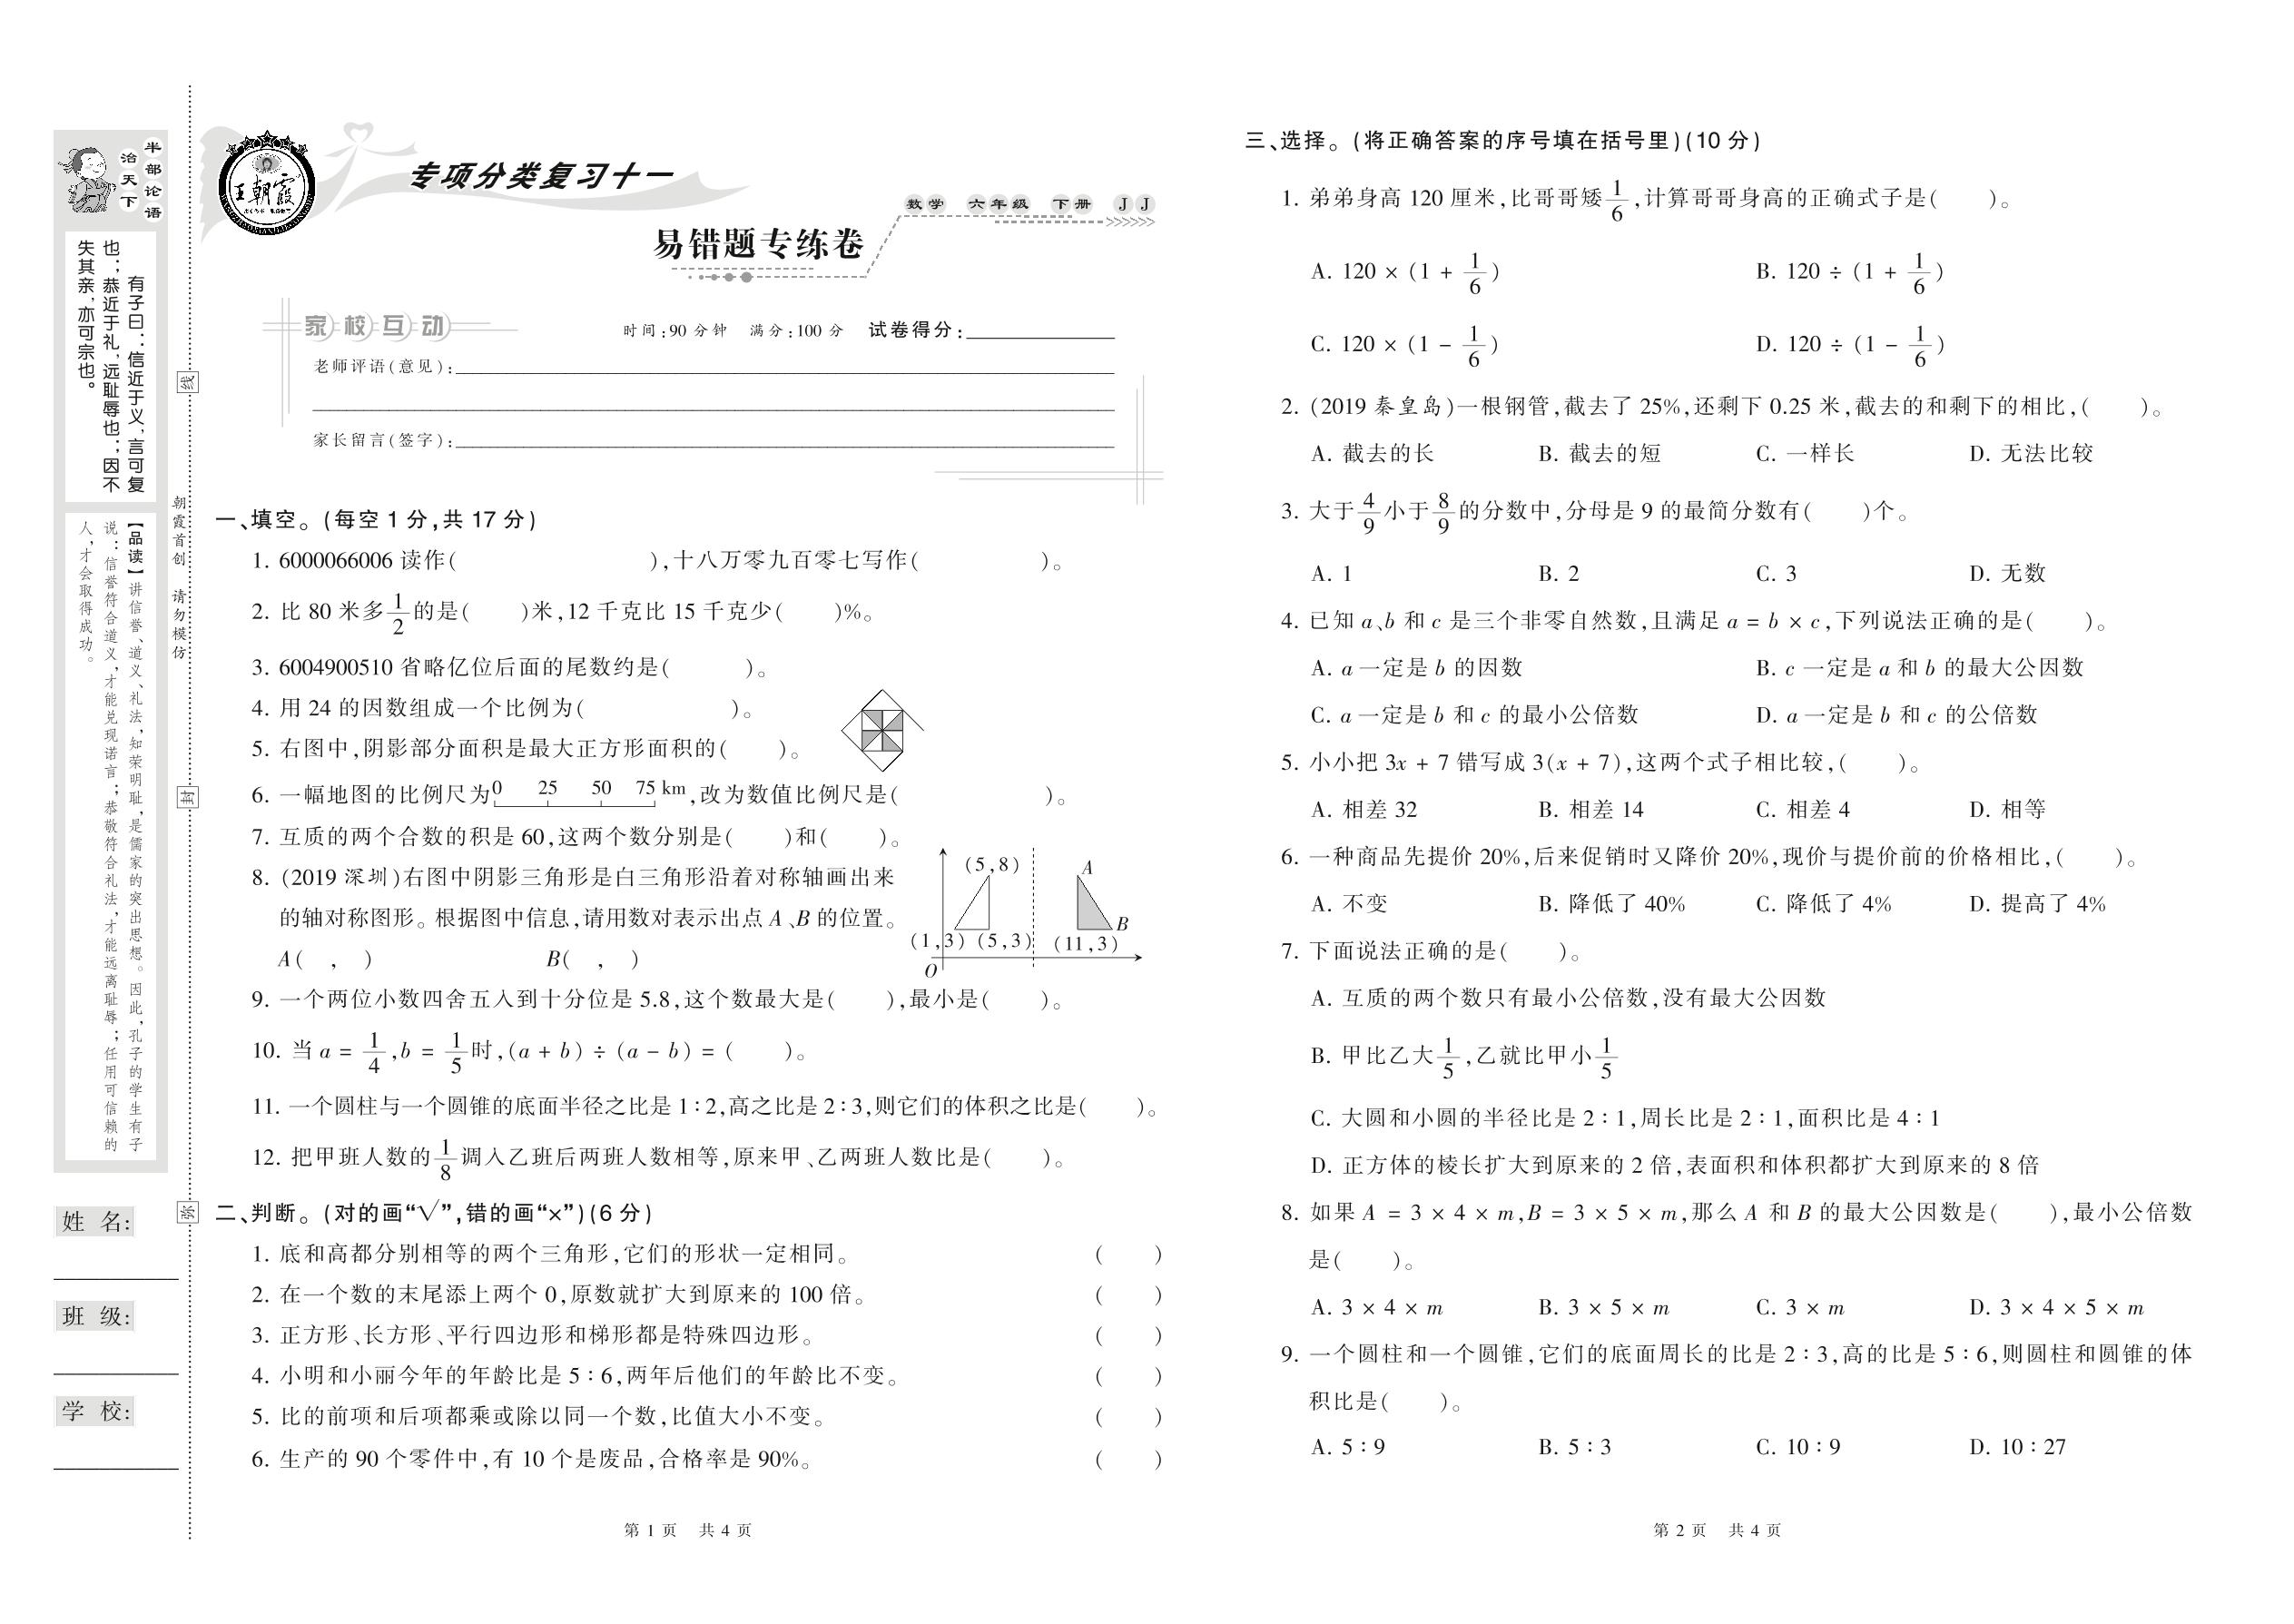 半部论语
治天下
有子曰：信近于义，言可复
也；恭近于礼，远耻辱也；因不
失其亲，亦可宗也。
【品读】讲信誉、道义、礼法，知荣明耻，是儒家的突出思想。因此，孔子的学生有子
说：信誉符合道义，才能兑现诺言；恭敬符合礼法，才能远离耻辱；任用可信赖的
人，才会取得成功。
姓 名:
班 级:
学 校:
线
朝霞首创 请勿模仿
封
弥
王朝霞
专项分类复习十一
数学 六年级 下册 JJ
易错题专练卷
家校互动
时间:90 分钟 满分:100 分 试卷得分:
老师评语(意见):
家长留言(签字):
一、填空。(每空 1 分,共 17 分)
1. 6000066006 读作( ),十八万零九百零七写作( )。
2. 比 80 米多 1/2 的是( )米,12 千克比 15 千克少( )%。
3. 6004900510 省略亿位后面的尾数约是( )。
4. 用 24 的因数组成一个比例为( )。
5. 右图中,阴影部分面积是最大正方形面积的( )。
6. 一幅地图的比例尺为 0 25 50 75 km,改为数值比例尺是( )。
7. 互质的两个合数的积是 60,这两个数分别是( )和( )。
8. (2019 深圳)右图中阴影三角形是白三角形沿着对称轴画出来
的轴对称图形。根据图中信息,请用数对表示出点 A、B 的位置。
A( , ) B( , )
(5,8) A
B
(1,3) (5,3) (11,3)
O
9. 一个两位小数四舍五入到十分位是 5.8,这个数最大是( ),最小是( )。
10. 当 a = 1/4,b = 1/5 时,(a + b) ÷ (a - b) = ( )。
11. 一个圆柱与一个圆锥的底面半径之比是 1∶2,高之比是 2∶3,则它们的体积之比是( )。
12. 把甲班人数的 1/8 调入乙班后两班人数相等,原来甲、乙两班人数比是( )。
二、判断。(对的画“√”,错的画“×”)(6 分)
1. 底和高都分别相等的两个三角形,它们的形状一定相同。 ( )
2. 在一个数的末尾添上两个 0,原数就扩大到原来的 100 倍。 ( )
3. 正方形、长方形、平行四边形和梯形都是特殊四边形。 ( )
4. 小明和小丽今年的年龄比是 5∶6,两年后他们的年龄比不变。 ( )
5. 比的前项和后项都乘或除以同一个数,比值大小不变。 ( )
6. 生产的 90 个零件中,有 10 个是废品,合格率是 90%。 ( )
第 1 页 共 4 页
三、选择。(将正确答案的序号填在括号里)(10 分)
1. 弟弟身高 120 厘米,比哥哥矮 1/6,计算哥哥身高的正确式子是( )。
A. 120 × (1 + 1/6) B. 120 ÷ (1 + 1/6)
C. 120 × (1 - 1/6) D. 120 ÷ (1 - 1/6)
2. (2019 秦皇岛)一根钢管,截去了 25%,还剩下 0.25 米,截去的和剩下的相比,( )。
A. 截去的长 B. 截去的短 C. 一样长 D. 无法比较
3. 大于 4/9 小于 8/9 的分数中,分母是 9 的最简分数有( )个。
A. 1 B. 2 C. 3 D. 无数
4. 已知 a、b 和 c 是三个非零自然数,且满足 a = b × c,下列说法正确的是( )。
A. a 一定是 b 的因数 B. c 一定是 a 和 b 的最大公因数
C. a 一定是 b 和 c 的最小公倍数 D. a 一定是 b 和 c 的公倍数
5. 小小把 3x + 7 错写成 3(x + 7),这两个式子相比较,( )。
A. 相差 32 B. 相差 14 C. 相差 4 D. 相等
6. 一种商品先提价 20%,后来促销时又降价 20%,现价与提价前的价格相比,( )。
A. 不变 B. 降低了 40% C. 降低了 4% D. 提高了 4%
7. 下面说法正确的是( )。
A. 互质的两个数只有最小公倍数,没有最大公因数
B. 甲比乙大 1/5,乙就比甲小 1/5
C. 大圆和小圆的半径比是 2∶1,周长比是 2∶1,面积比是 4∶1
D. 正方体的棱长扩大到原来的 2 倍,表面积和体积都扩大到原来的 8 倍
8. 如果 A = 3 × 4 × m,B = 3 × 5 × m,那么 A 和 B 的最大公因数是( ),最小公倍数
是( )。
A. 3 × 4 × m B. 3 × 5 × m C. 3 × m D. 3 × 4 × 5 × m
9. 一个圆柱和一个圆锥,它们的底面周长的比是 2∶3,高的比是 5∶6,则圆柱和圆锥的体
积比是( )。
A. 5∶9 B. 5∶3 C. 10∶9 D. 10∶27
第 2 页 共 4 页